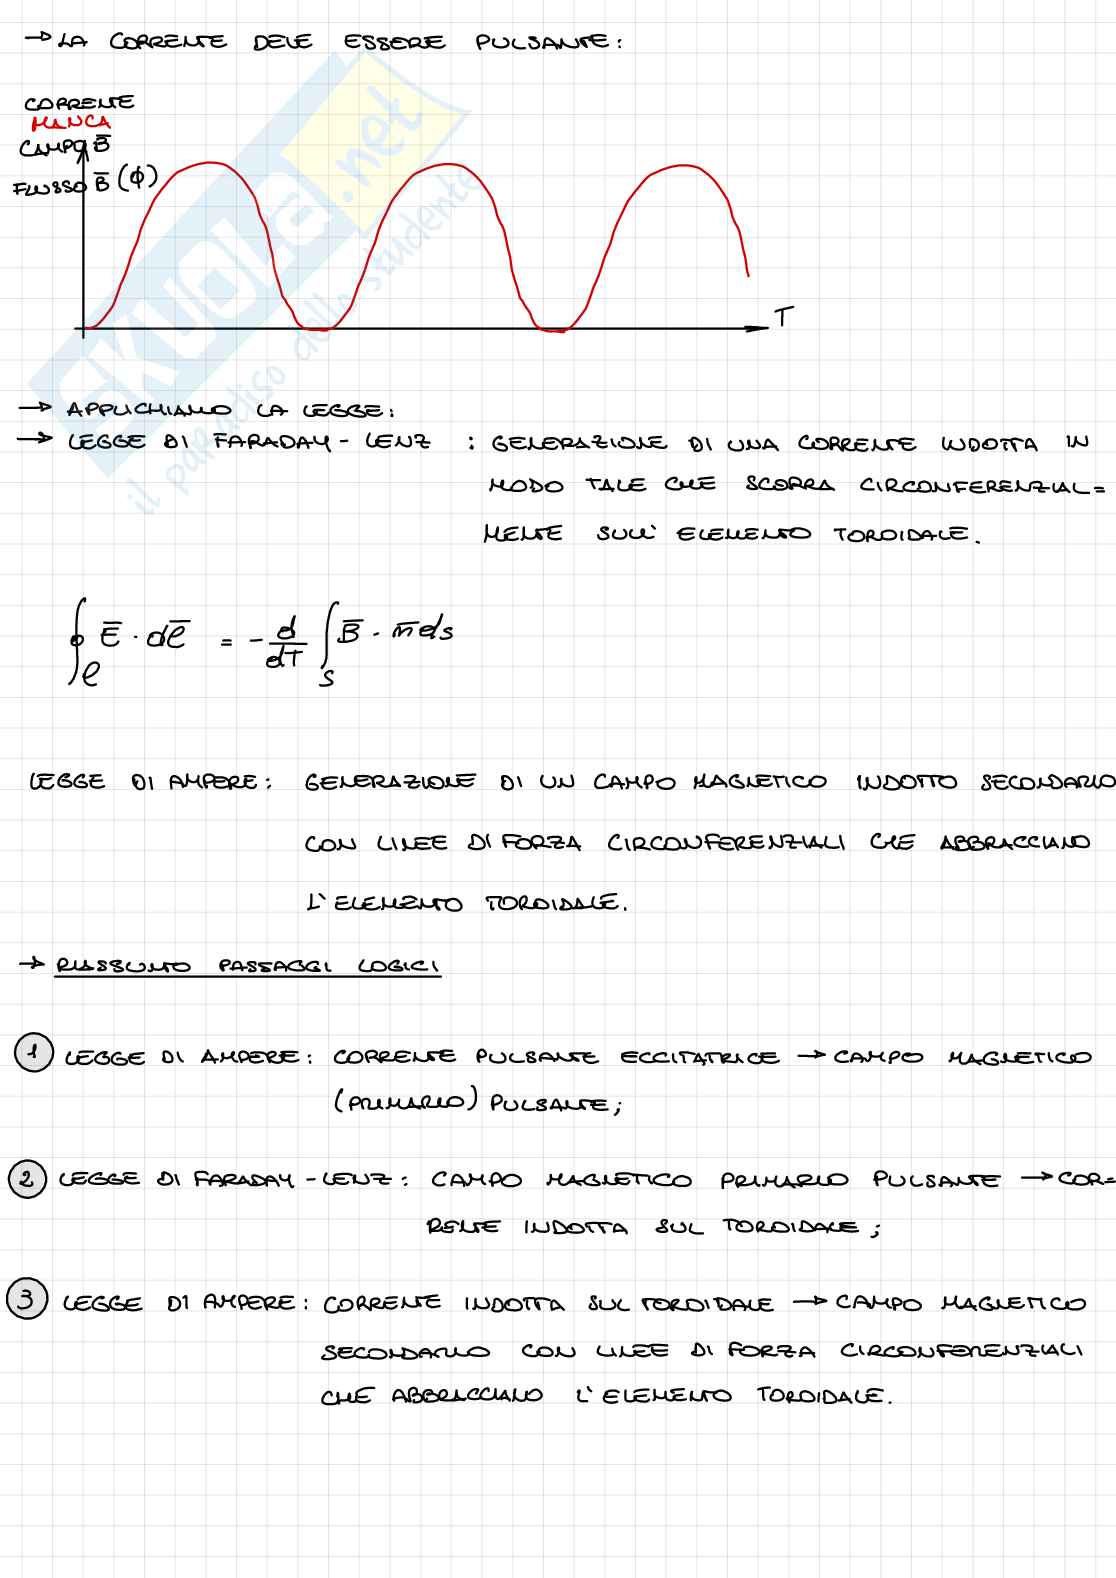 → LA CORRENTE DEVE ESSERE PULSANTE:
CORRENTE
MANCA
CAMPO B̅
FLUSSO B̅ (Φ)
T
→ APPLICHIAMO LA LEGGE:
→ LEGGE DI FARADAY-LENZ : GENERAZIONE DI UNA CORRENTE INDOTTA IN
MODO TALE CHE SCORRA CIRCONFERENZIAL=
MENTE SULL' ELEMENTO TOROIDALE.
∮ℓ E̅ · dℓ̅ = - d/dT ∫S B̅ · n̅ ds
LEGGE DI AMPERE: GENERAZIONE DI UN CAMPO MAGNETICO INDOTTO SECONDARIO
CON LINEE DI FORZA CIRCONFERENZIALI CHE ABBRACCIANO
L'ELEMENTO TOROIDALE.
→ RIASSUNTO PASSAGGI LOGICI
1 LEGGE DI AMPERE: CORRENTE PULSANTE ECCITATRICE → CAMPO MAGNETICO
(PRIMARIO) PULSANTE;
2 LEGGE DI FARADAY-LENZ: CAMPO MAGNETICO PRIMARIO PULSANTE → COR=
RENTE INDOTTA SUL TOROIDALE;
3 LEGGE DI AMPERE: CORRENTE INDOTTA SUL TOROIDALE → CAMPO MAGNETICO
SECONDARIO CON LINEE DI FORZA CIRCONFERENZIALI
CHE ABBRACCIANO L'ELEMENTO TOROIDALE.
SKUOLA.net
il paradiso dello studente